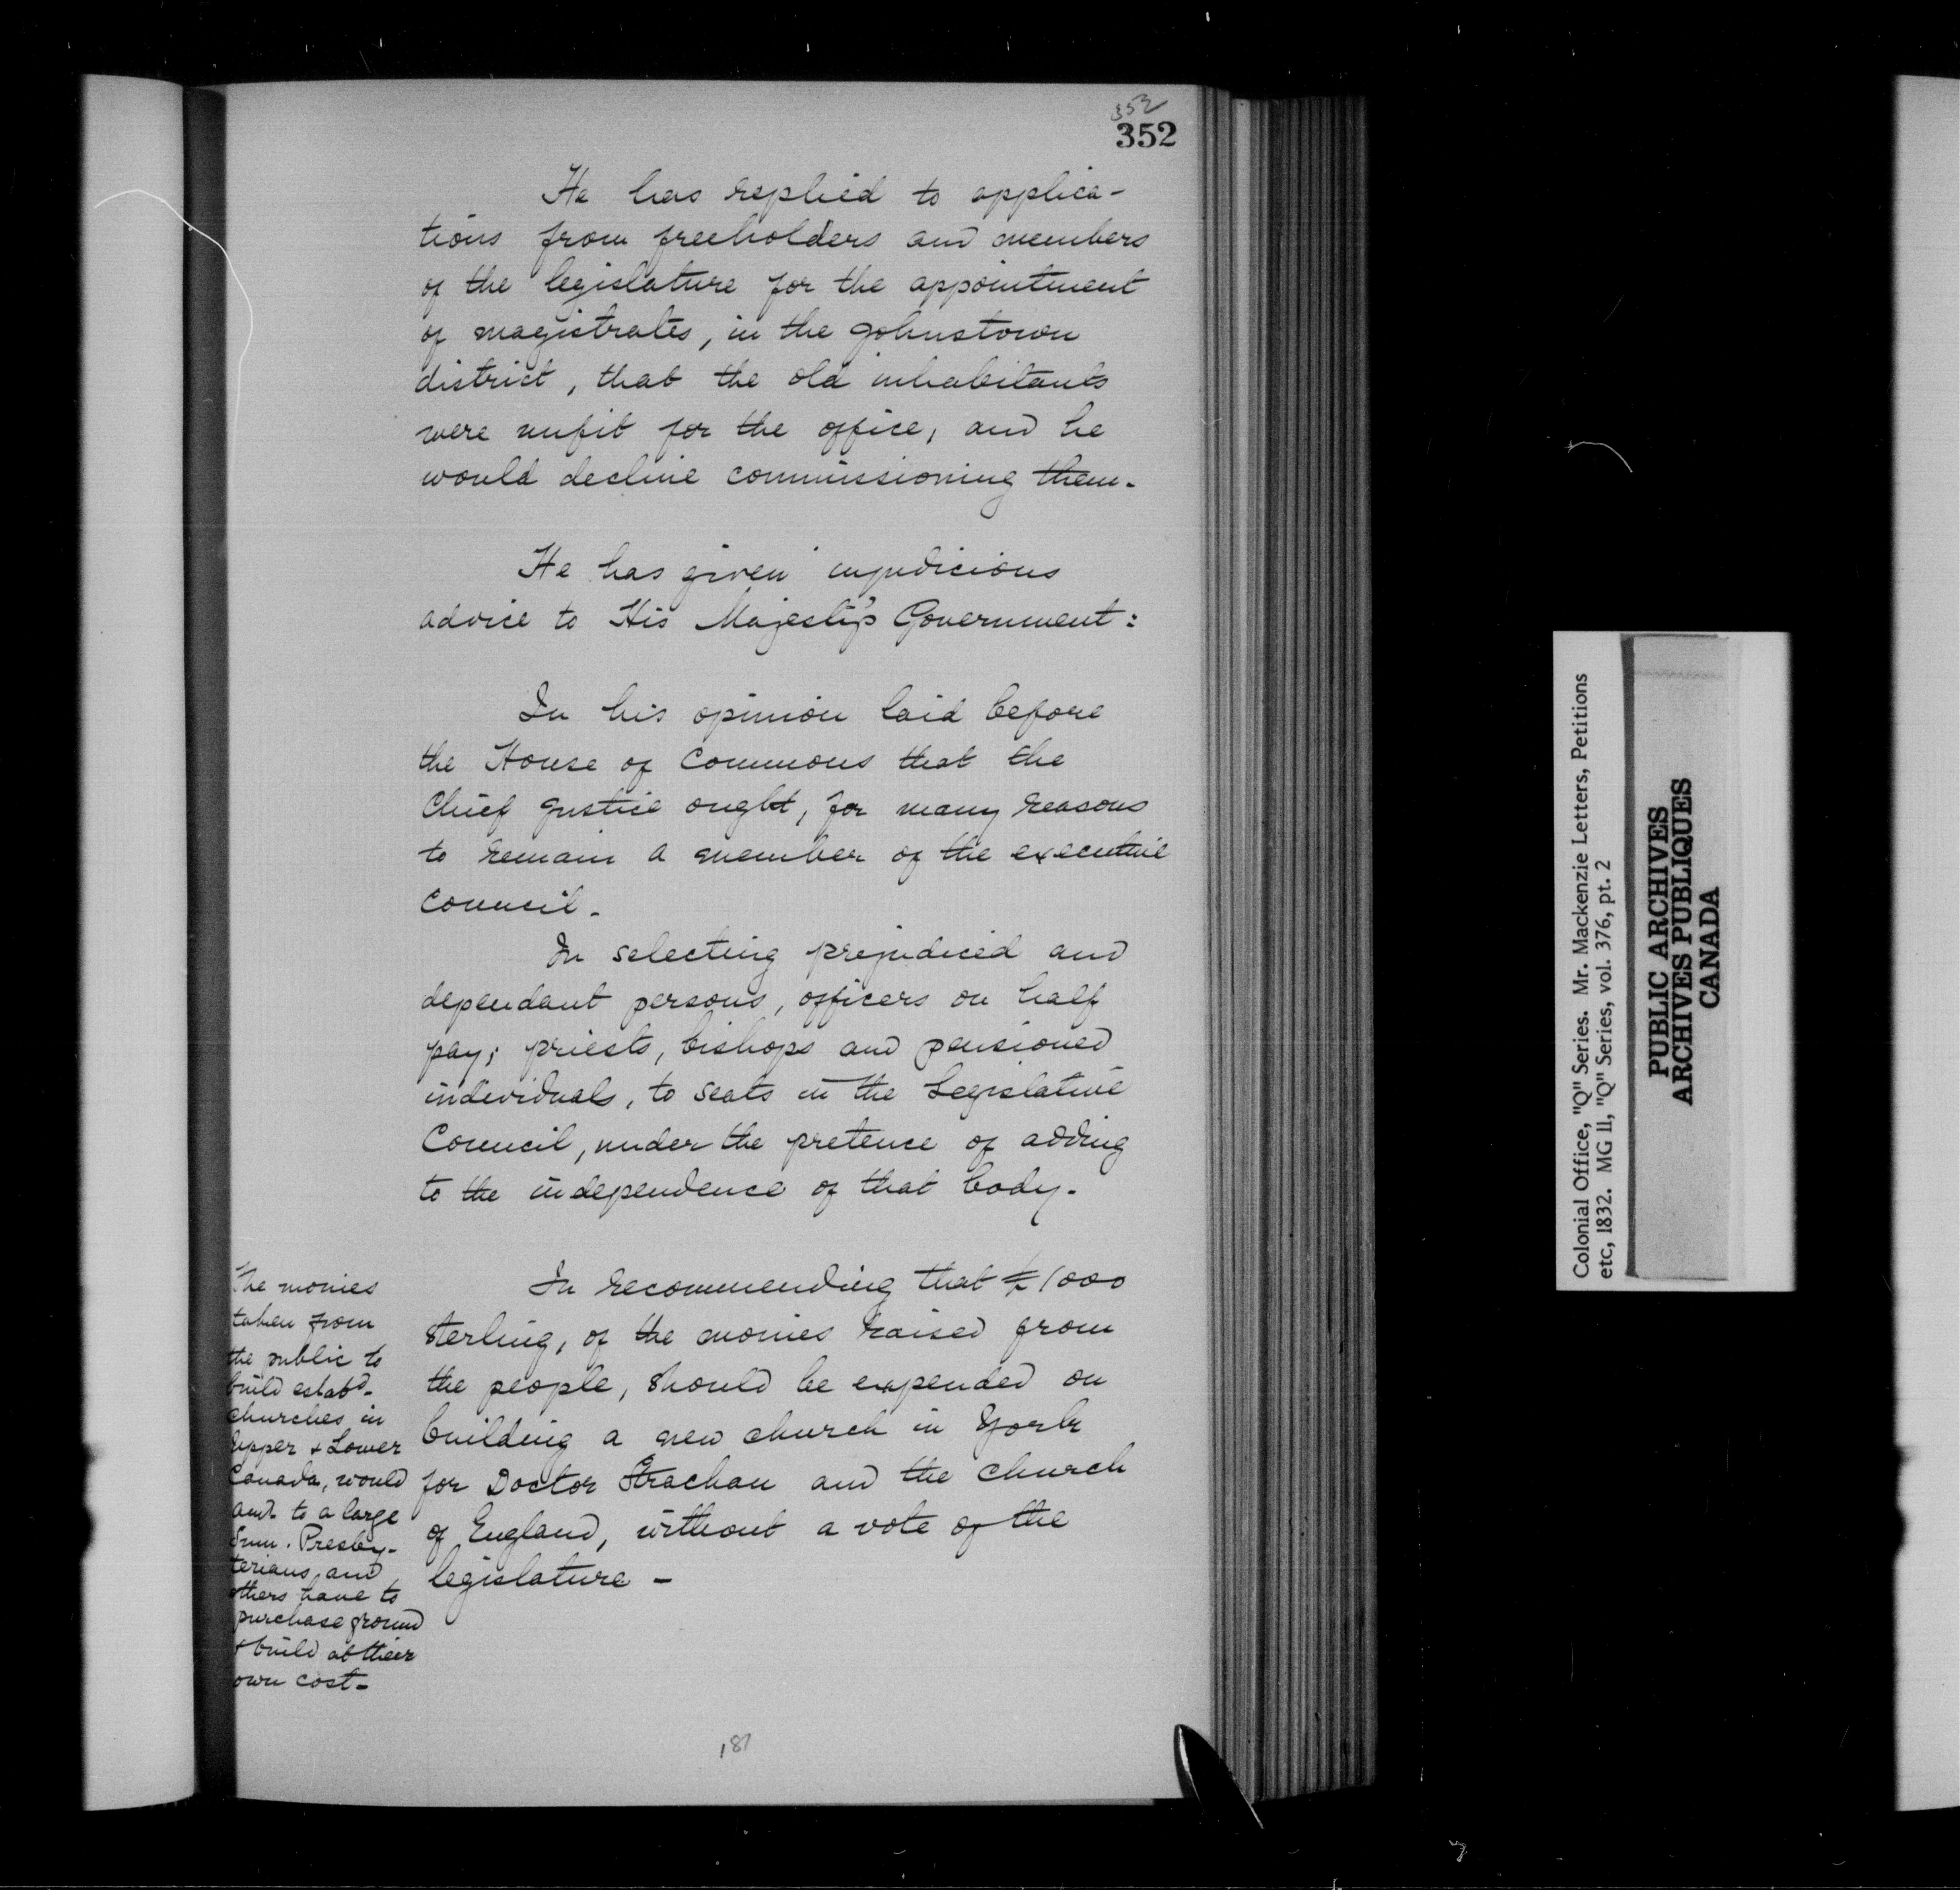 352
352
He has replied to applica-
tions from freeholders and members
of the legislature for the appointment
of magistrates, in the Johnstown
district, that the old inhabitants
were unfit for the office, and he
would decline commissioning them.
He has given injudicious
advice to His Majesty's Government:
In his opinion laid before
the House of Commons that the
Chief Justice ought, for many reasons
to remain a member of the executive
Council.
In selecting prejudiced and
dependant persons, officers on half
pay; priests, bishops and pensioned
individuals, to seats in the Legislative
Council, under the pretence of adding
to the independence of that body.
In recommending that £1000
sterling, of the monies raised from
the people, should be expended on
building a new church in York
for Doctor Strachan and the Church
of England, without a vote of the
legislature -
The monies
taken from
the public to
build estabd.
churches in
Upper & Lower
Canada, would
amt. to a large
Sum. Presby-
terians and
others have to
purchase ground
& build at their
own cost-
181
Colonial Office, "Q" Series. Mr. Mackenzie Letters, Petitions
etc, 1832. MG 11, "Q" Series, vol. 376, pt. 2
PUBLIC ARCHIVES
ARCHIVES PUBLIQUES
CANADA